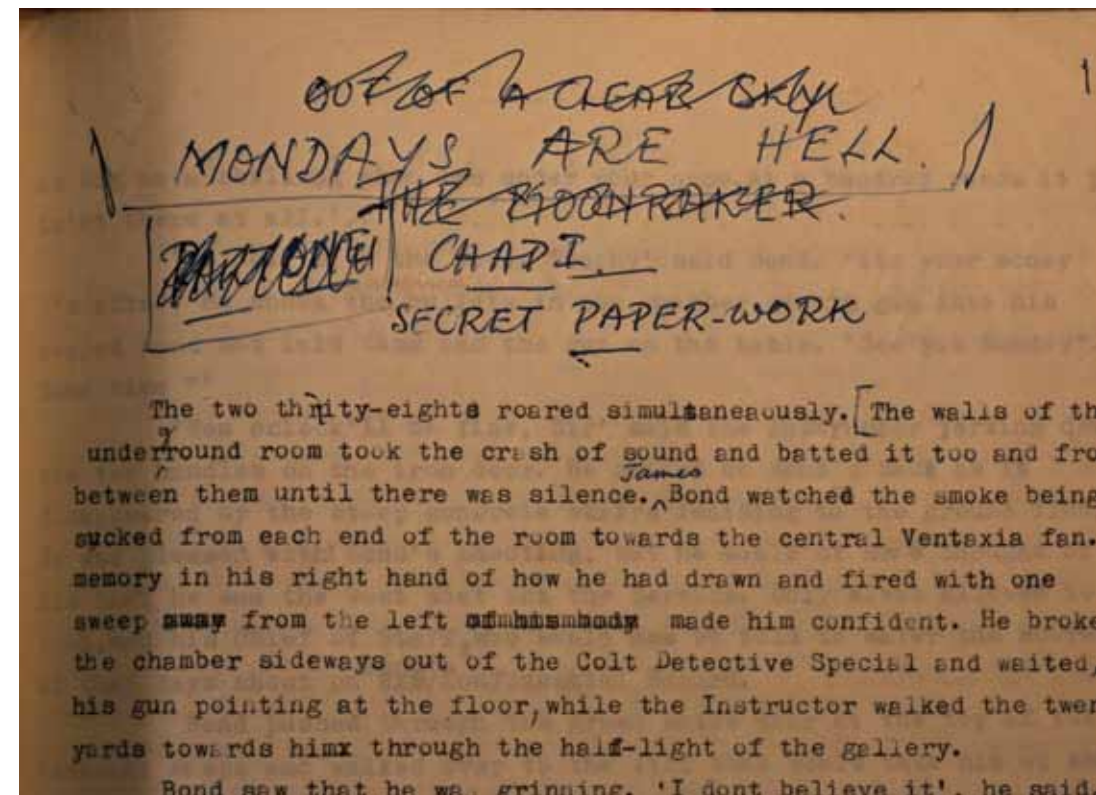 1
OUT OF A CLEAR SKY
MONDAYS ARE HELL.
THE MOONRAKER.
CHAP I.
SECRET PAPER-WORK
The two thrity-eights roared simultaneously. [The walls of th
underground room took the crash of sound and batted it too and fro
between them until there was silence. James Bond watched the smoke being
sucked from each end of the room towards the central Ventaxia fan.
memory in his right hand of how he had drawn and fired with one
sweep away from the left of his body made him confident. He broke
the chamber sideways out of the Colt Detective Special and waited,
his gun pointing at the floor, while the Instructor walked the twen
yards towards himx through the half-light of the gallery.
Bond saw that he was grinning. 'I dont believe it', he said.